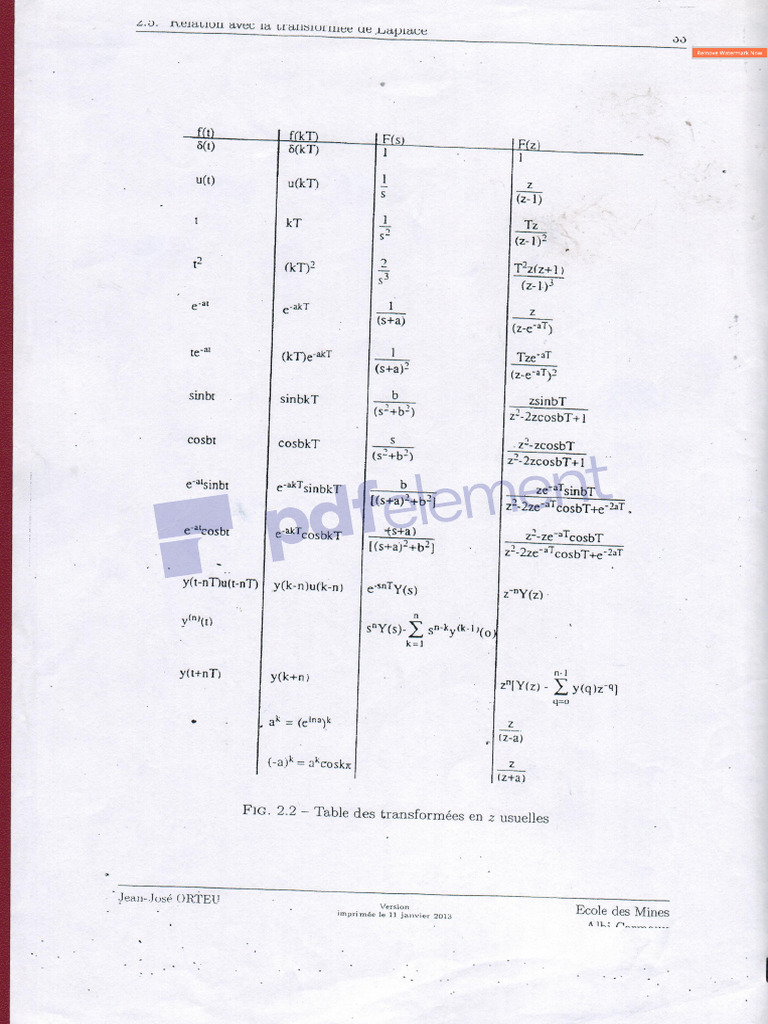 2.3. Relation avec la transformée de Laplace 33
Remove Watermark Now
f(t) f(kT) F(s) F(z)
δ(t) δ(kT) 1 1
u(t) u(kT) 1/s z/(z-1)
t kT 1/s² Tz/(z-1)²
t² (kT)² 2/s³ T²z(z+1)/(z-1)³
e⁻ᵃᵗ e⁻ᵃᵏᵀ 1/(s+a) z/(z-e⁻ᵃᵀ)
te⁻ᵃᵗ (kT)e⁻ᵃᵏᵀ 1/(s+a)² Tze⁻ᵃᵀ/(z-e⁻ᵃᵀ)²
sinbt sinbkT b/(s²+b²) zsinbT/z²-2zcosbT+1
cosbt cosbkT s/(s²+b²) z²-zcosbT/z²-2zcosbT+1
e⁻ᵃᵗsinbt e⁻ᵃᵏᵀsinbkT b/[(s+a)²+b²] ze⁻ᵃᵀsinbT/z²-2ze⁻ᵃᵀcosbT+e⁻²ᵃᵀ
e⁻ᵃᵗcosbt e⁻ᵃᵏᵀcosbkT (s+a)/[(s+a)²+b²] z²-ze⁻ᵃᵀcosbT/z²-2ze⁻ᵃᵀcosbT+e⁻²ᵃᵀ
pdfelement
y(t-nT)u(t-nT) y(k-n)u(k-n) e⁻ˢⁿᵀY(s) z⁻ⁿY(z)
y⁽ⁿ⁾(t) sⁿY(s)- n Σ k=1 sⁿ⁻ᵏy⁽ᵏ⁻¹⁾(o)
y(t+nT) y(k+n) zⁿ[Y(z) - n-1 Σ q=o y(q)z^-q]
aᵏ = (eˡⁿᵃ)ᵏ z/(z-a)
(-a)ᵏ = aᵏcoskπ z/(z+a)
FIG. 2.2 – Table des transformées en z usuelles
Jean-José ORTEU
Version
imprimée le 11 janvier 2013
Ecole des Mines
Albi Carmaux